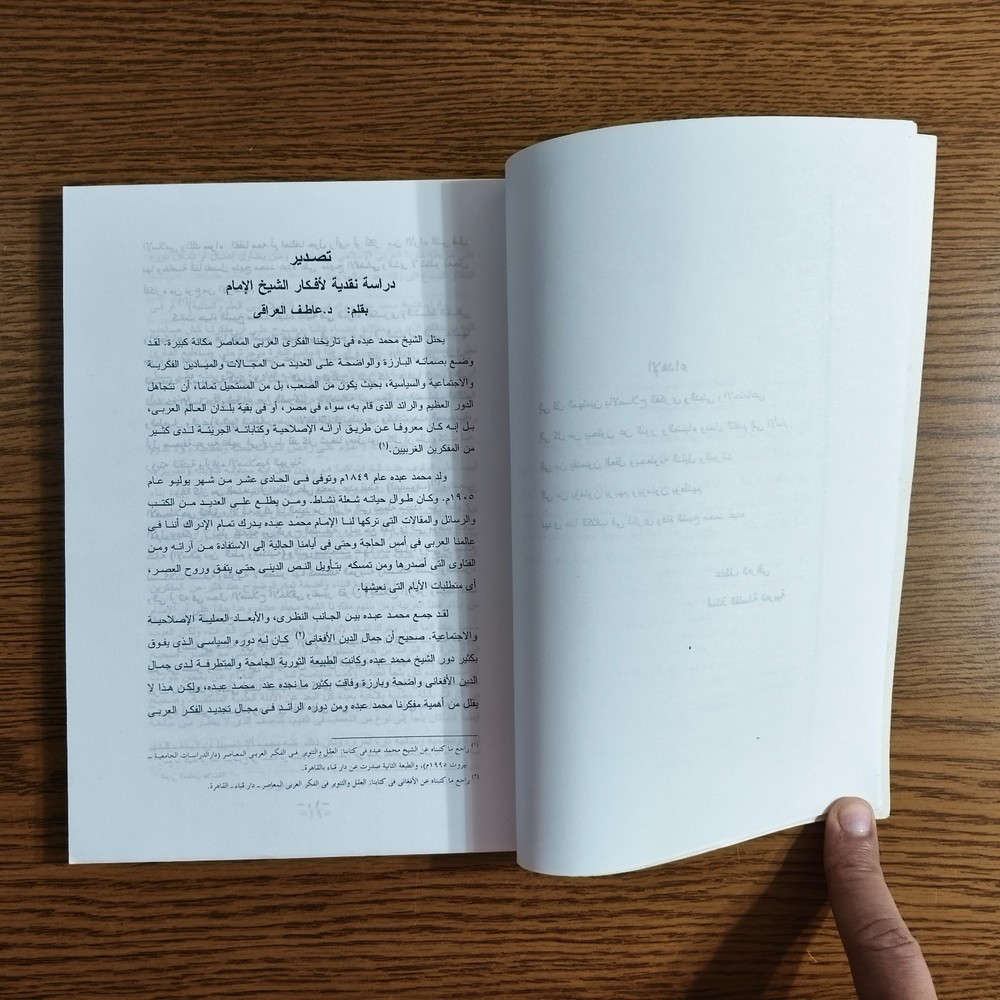 تصـدير
دراسة نقدية لأفكار الشيخ الإمام
بقلم: د.عاطف العراقى
يحتل الشيخ محمد عبده فى تاريخنا الفكرى العربى المعاصر مكانة كبيرة. لقد
وضع بصماته البارزة والواضحة على العديد من المجالات والميادين الفكرية
والاجتماعية والسياسية، بحيث يكون من الصعب، بل من المستحيل تماما، أن نتجاهل
الدور العظيم والرائد الذى قام به، سواء فى مصر، أو فى بقية بلدان العالم العربى،
بل إنه كان معروفا عن طريق آرائه الإصلاحية وكتاباته الجريئة لدى كثير
من المفكرين الغربيين.(١)
ولد محمد عبده عام ١٨٤٩م وتوفى فى الحادى عشر من شهر يوليو عام
١٩٠٥م. وكان طوال حياته شعلة نشاط. ومن يطلع على العديد من الكتب
والرسائل والمقالات التى تركها لنا الإمام محمد عبده يدرك تمام الإدراك أننا فى
عالمنا العربى فى أمس الحاجة وحتى فى أيامنا الحالية إلى الاستفادة من آرائه ومن
الفتاوى التى أصدرها ومن تمسكه بتأويل النص الدينى حتى يتفق وروح العصر،
أى متطلبات الأيام التى نعيشها.
لقد جمع محمد عبده بين الجانب النظرى، والأبعاد العملية الإصلاحية
والاجتماعية. صحيح أن جمال الدين الأفغانى(٢) كان له دوره السياسى الذى يفوق
بكثير دور الشيخ محمد عبده وكانت الطبيعة الثورية الجامحة والمتطرفة لدى جمال
الدين الأفغانى واضحة وبارزة وفاقت بكثير ما نجده عند محمد عبده، ولكن هذا لا
يقلل من أهمية مفكرنا محمد عبده ومن دوره الرائد فى مجال تجديد الفكر العربى
(١) راجع ما كتبناه عن الشيخ محمد عبده فى كتابنا: العقل والتنوير فى الفكر العربى المعاصر (دار الدراسات الجامعية ـ
بيروت ١٩٩٥م)، والطبعة الثانية صدرت عن دار قباء بالقاهرة.
(٢) راجع ما كتبناه عن الأفغانى فى كتابنا: العقل والتنوير فى الفكر العربى المعاصر ـ دار قباء ـ القاهرة.